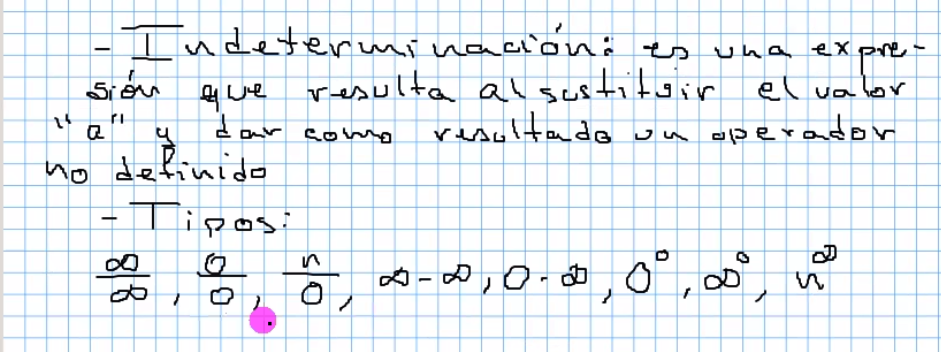 - Indeterminación: es una expre-
sión que resulta al sustituir el valor
"a" y dar como resultado un operador
no definido
- Tipos:
∞/∞, 0/0, n/0, ∞-∞, 0-∞, 0⁰, ∞⁰, n^∞